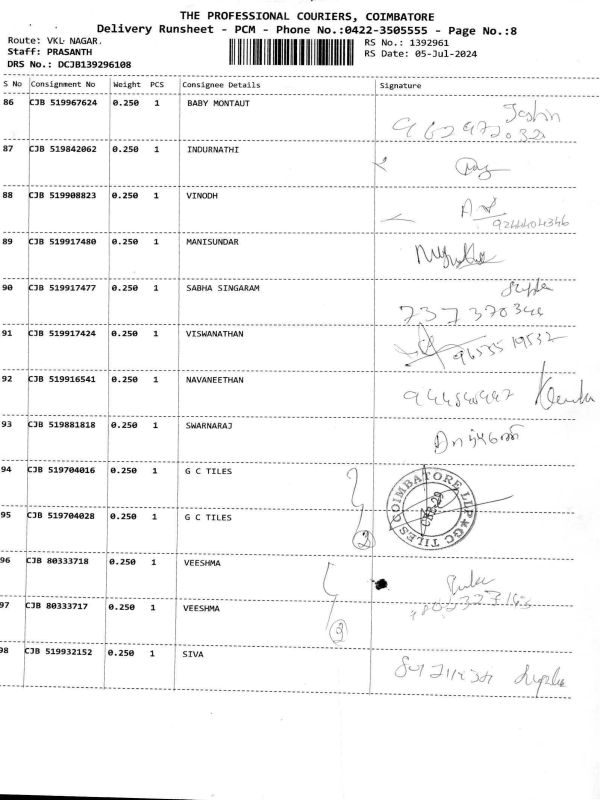 THE PROFESSIONAL COURIERS, COIMBATORE
Delivery Runsheet - PCM - Phone No.:0422-3505555 - Page No.:8
Route: VKL NAGAR. RS No.: 1392961
Staff: PRASANTH RS Date: 05-Jul-2024
DRS No.: DCJB139296108
S No Consignment No Weight PCS Consignee Details Signature
86 CJB 519967624 0.250 1 BABY MONTAUT
87 CJB 519842062 0.250 1 INDURNATHI
88 CJB 519908823 0.250 1 VINODH
89 CJB 519917480 0.250 1 MANISUNDAR
90 CJB 519917477 0.250 1 SABHA SINGARAM
737 370344
91 CJB 519917424 0.250 1 VISWANATHAN
92 CJB 519916541 0.250 1 NAVANEETHAN
93 CJB 519881818 0.250 1 SWARNARAJ
94 CJB 519704016 0.250 1 G C TILES
GC TILES COIMBATORE LLP
95 CJB 519704028 0.250 1 G C TILES
2
96 CJB 80333718 0.250 1 VEESHMA
97 CJB 80333717 0.250 1 VEESHMA
2
98 CJB 519932152 0.250 1 SIVA